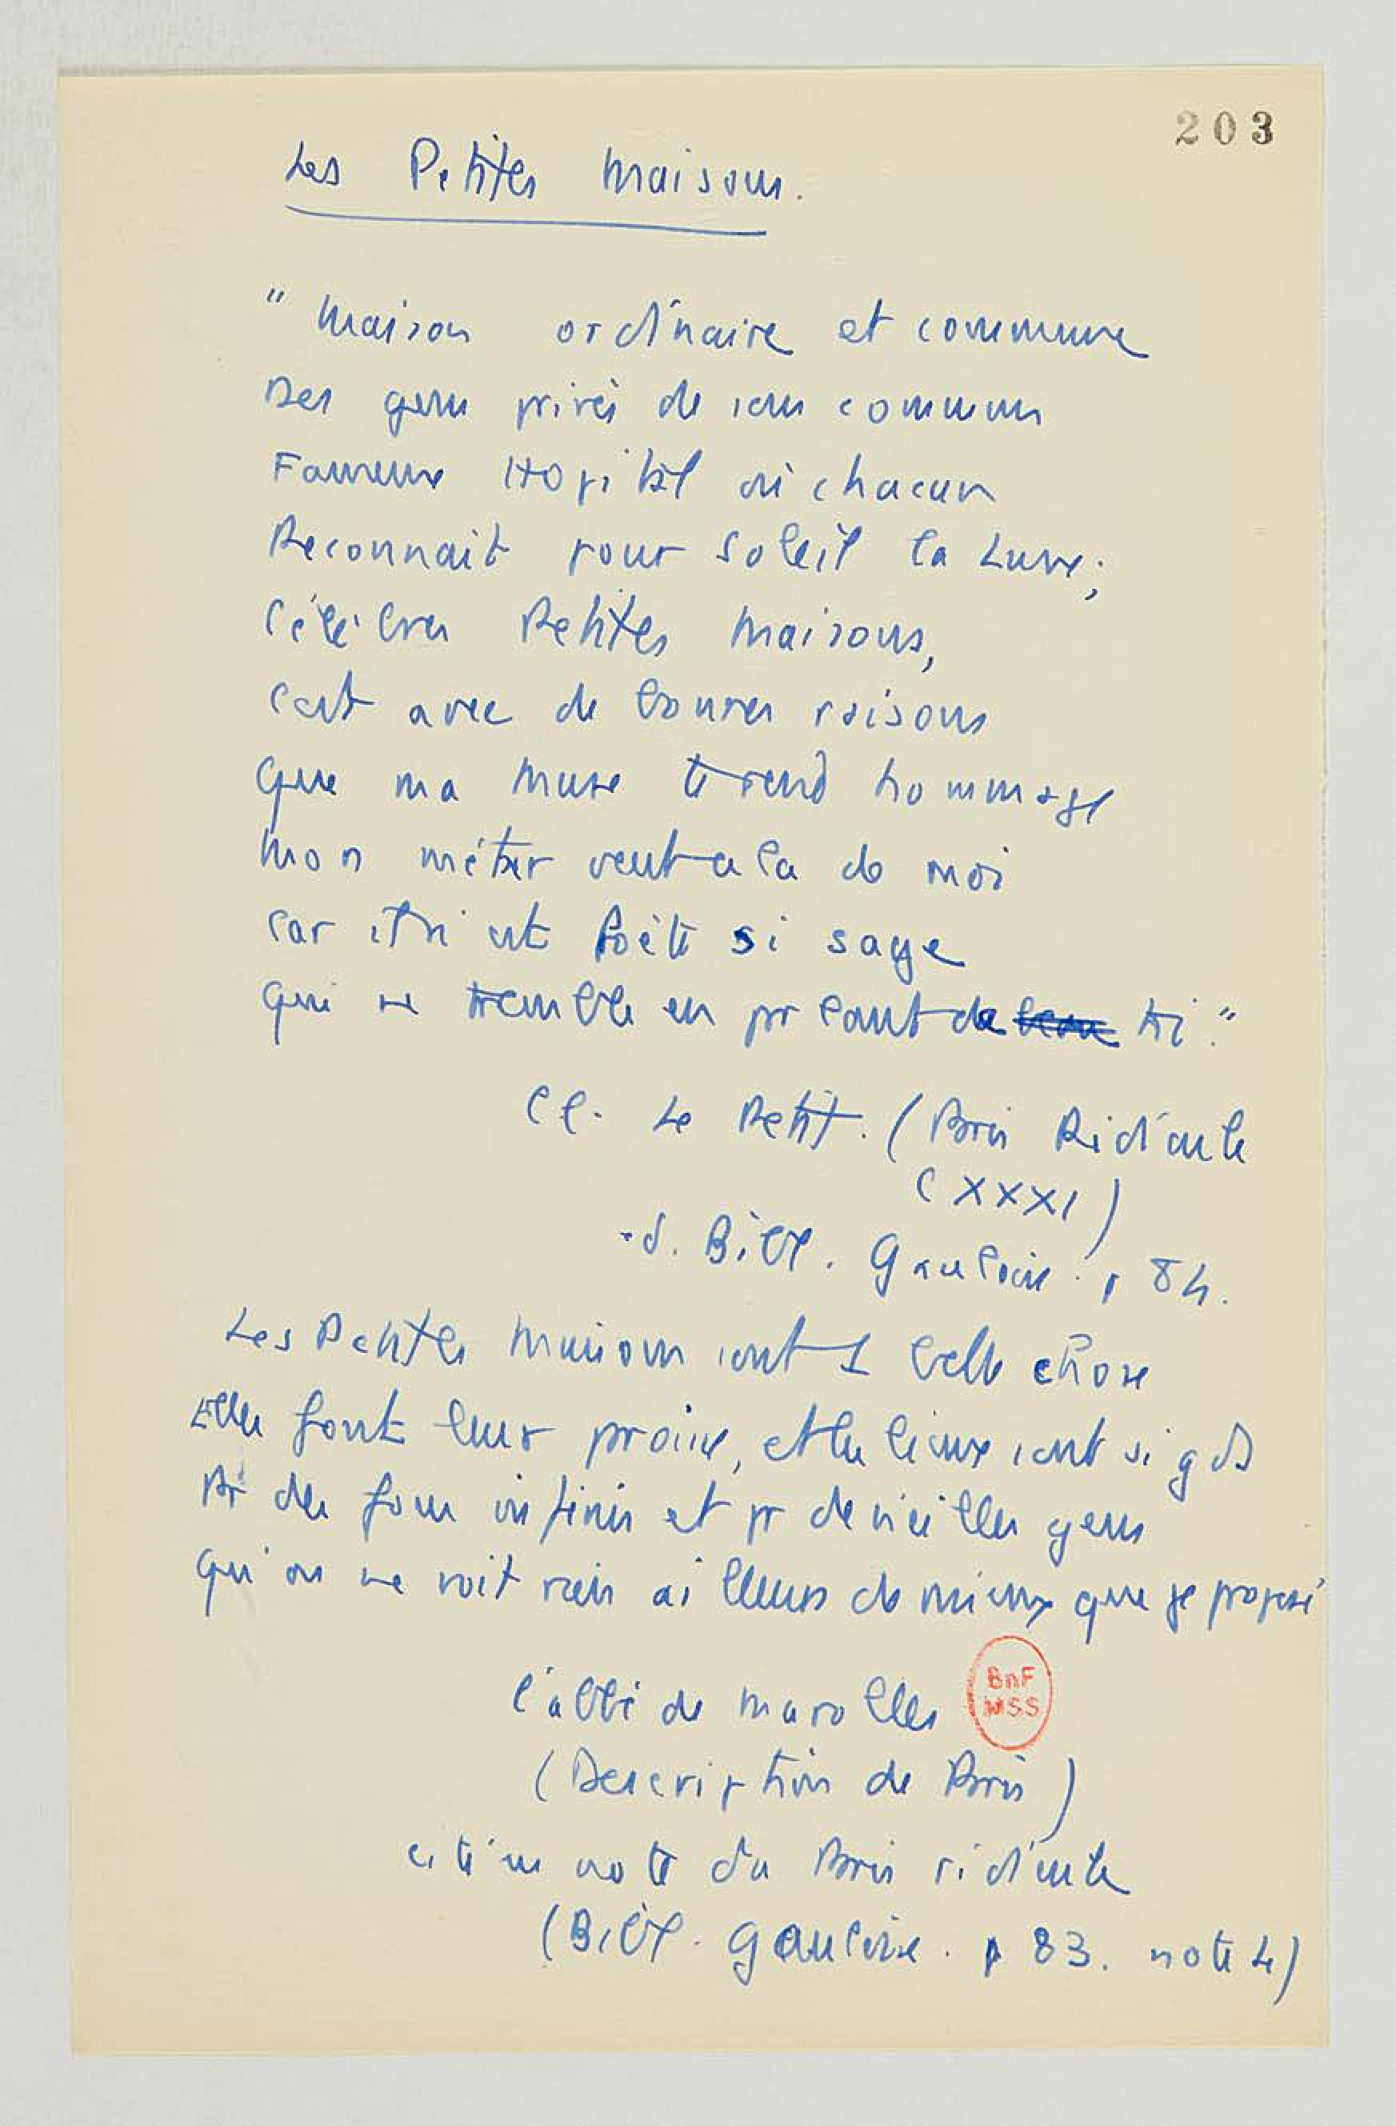 203
Les Petites Maisons.
" Maison ordinaire et commune
Des gens privés de sens commun
Fameux Hopital où chacun
Reconnait pour Soleil la Lune;
Célèbres Petites Maisons,
C'est avec de bonnes raisons
Que ma Muse te rend hommage
Mon métier veut cela de moi
Car il n'est Poète si sage
Qui ne tremble en parlant de toi."
Cl. Le Petit. (Paris Ridicule
CXXXI)
éd. Bibl. Gauloise. p 84.
Les Petites Maisons sont 1 belle chose
Elles font leur prix, et les lieux sont si gds
Pr des fous infinis et pr de vieilles gens
Qu'on ne voit rien ailleurs de mieux que je proposé
l'abbé de Marolles
BnF
MSS
(Description de Paris)
cité en note du Paris ridicule
(Bibl. Gauloise. p 83. note 4)